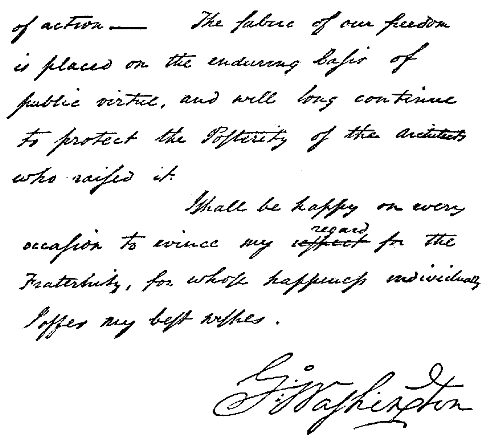 of action — The fabric of our freedom
is placed on the enduring basis of
public virtue, and will long continue
to protect the Posterity of the architects
who raised it.
I shall be happy on every
regard
occasion to evince my respect for the
Fraternity, for whose happiness individually
I offer my best wishes.
G:Washington